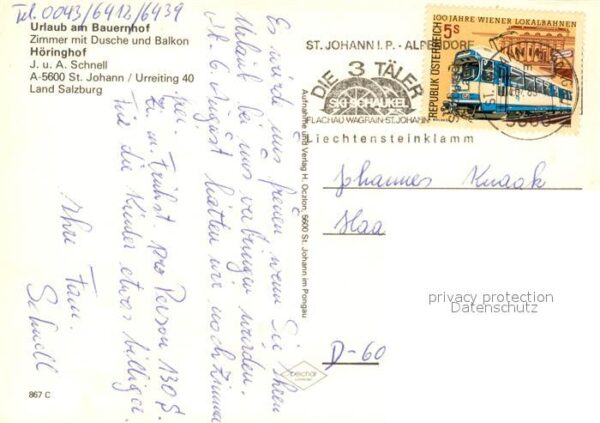 Tel. 0043/6412/6439
Urlaub am Bauernhof
Zimmer mit Dusche und Balkon
Höringhof
J. u. A. Schnell
A-5600 St. Johann / Urreiting 40
Land Salzburg
Es würde uns freuen, wenn Sie Ihren
Urlaub bei uns verbringen würden.
Ab 6. August hätten wir noch Zimmer
frei.
Zi. m. Frühst. pro Person 130 S.
Für die Kinder etwas billiger.
Ihre Fam.
Schnell
867 C
Aufnahme und Verlag H. Oczlon, 5600 St. Johann im Pongau
ST. JOHANN I. P. - ALPENDORF
DIE 3 TÄLER
SKI SCHAUKEL
FLACHAU WAGRAIN-ST.JOHANN
Liechtensteinklamm
100 JAHRE WIENER LOKALBAHNEN
5S
REPUBLIK ÖSTERREICH
Johannes Knaak
Haa
D-60
privacy protection
Datenschutz